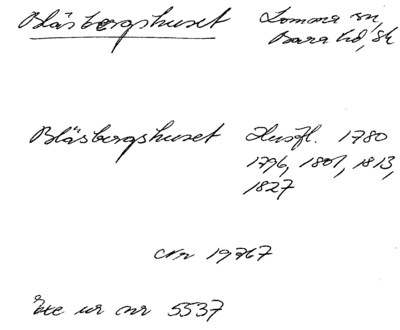 Bläsbergshuset Lomma sn,
Bara hd, Sk
Bläsbergshuset Husfl. 1780
1796, 1801, 1813,
1827
Nr 19767
ur nr 5537